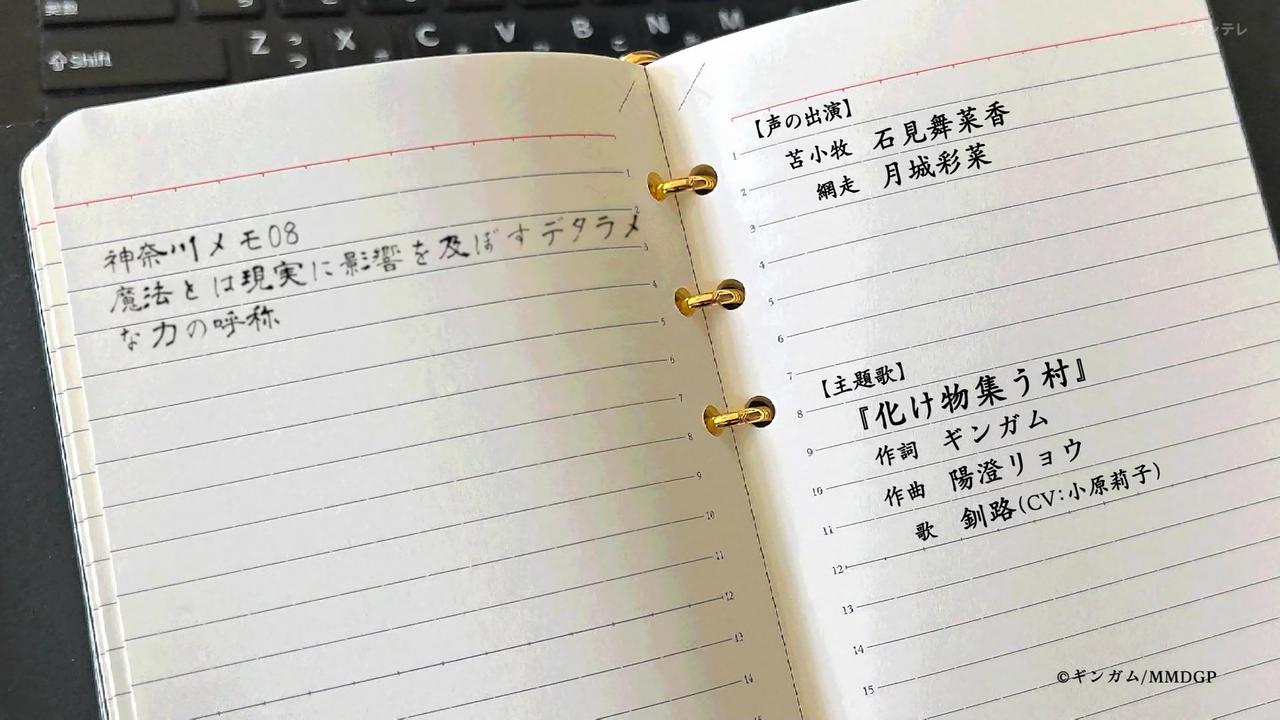 英数
Shift
Z っ X C V B こ N M
つ
カンテレ
神奈川メモ08
魔法とは現実に影響を及ぼすデタラメ
な力の呼称
1
2
3
4
5
6
7
8
9
10
11
12
13
14
15
【声の出演】
苫小牧 石見舞菜香
網走 月城彩菜
【主題歌】
『化け物集う村』
作詞 ギンガム
作曲 陽澄リョウ
歌 釧路(CV:小原莉子)
1
2
3
4
5
6
7
8
9
10
11
12
13
14
15
©ギンガム/MMDGP